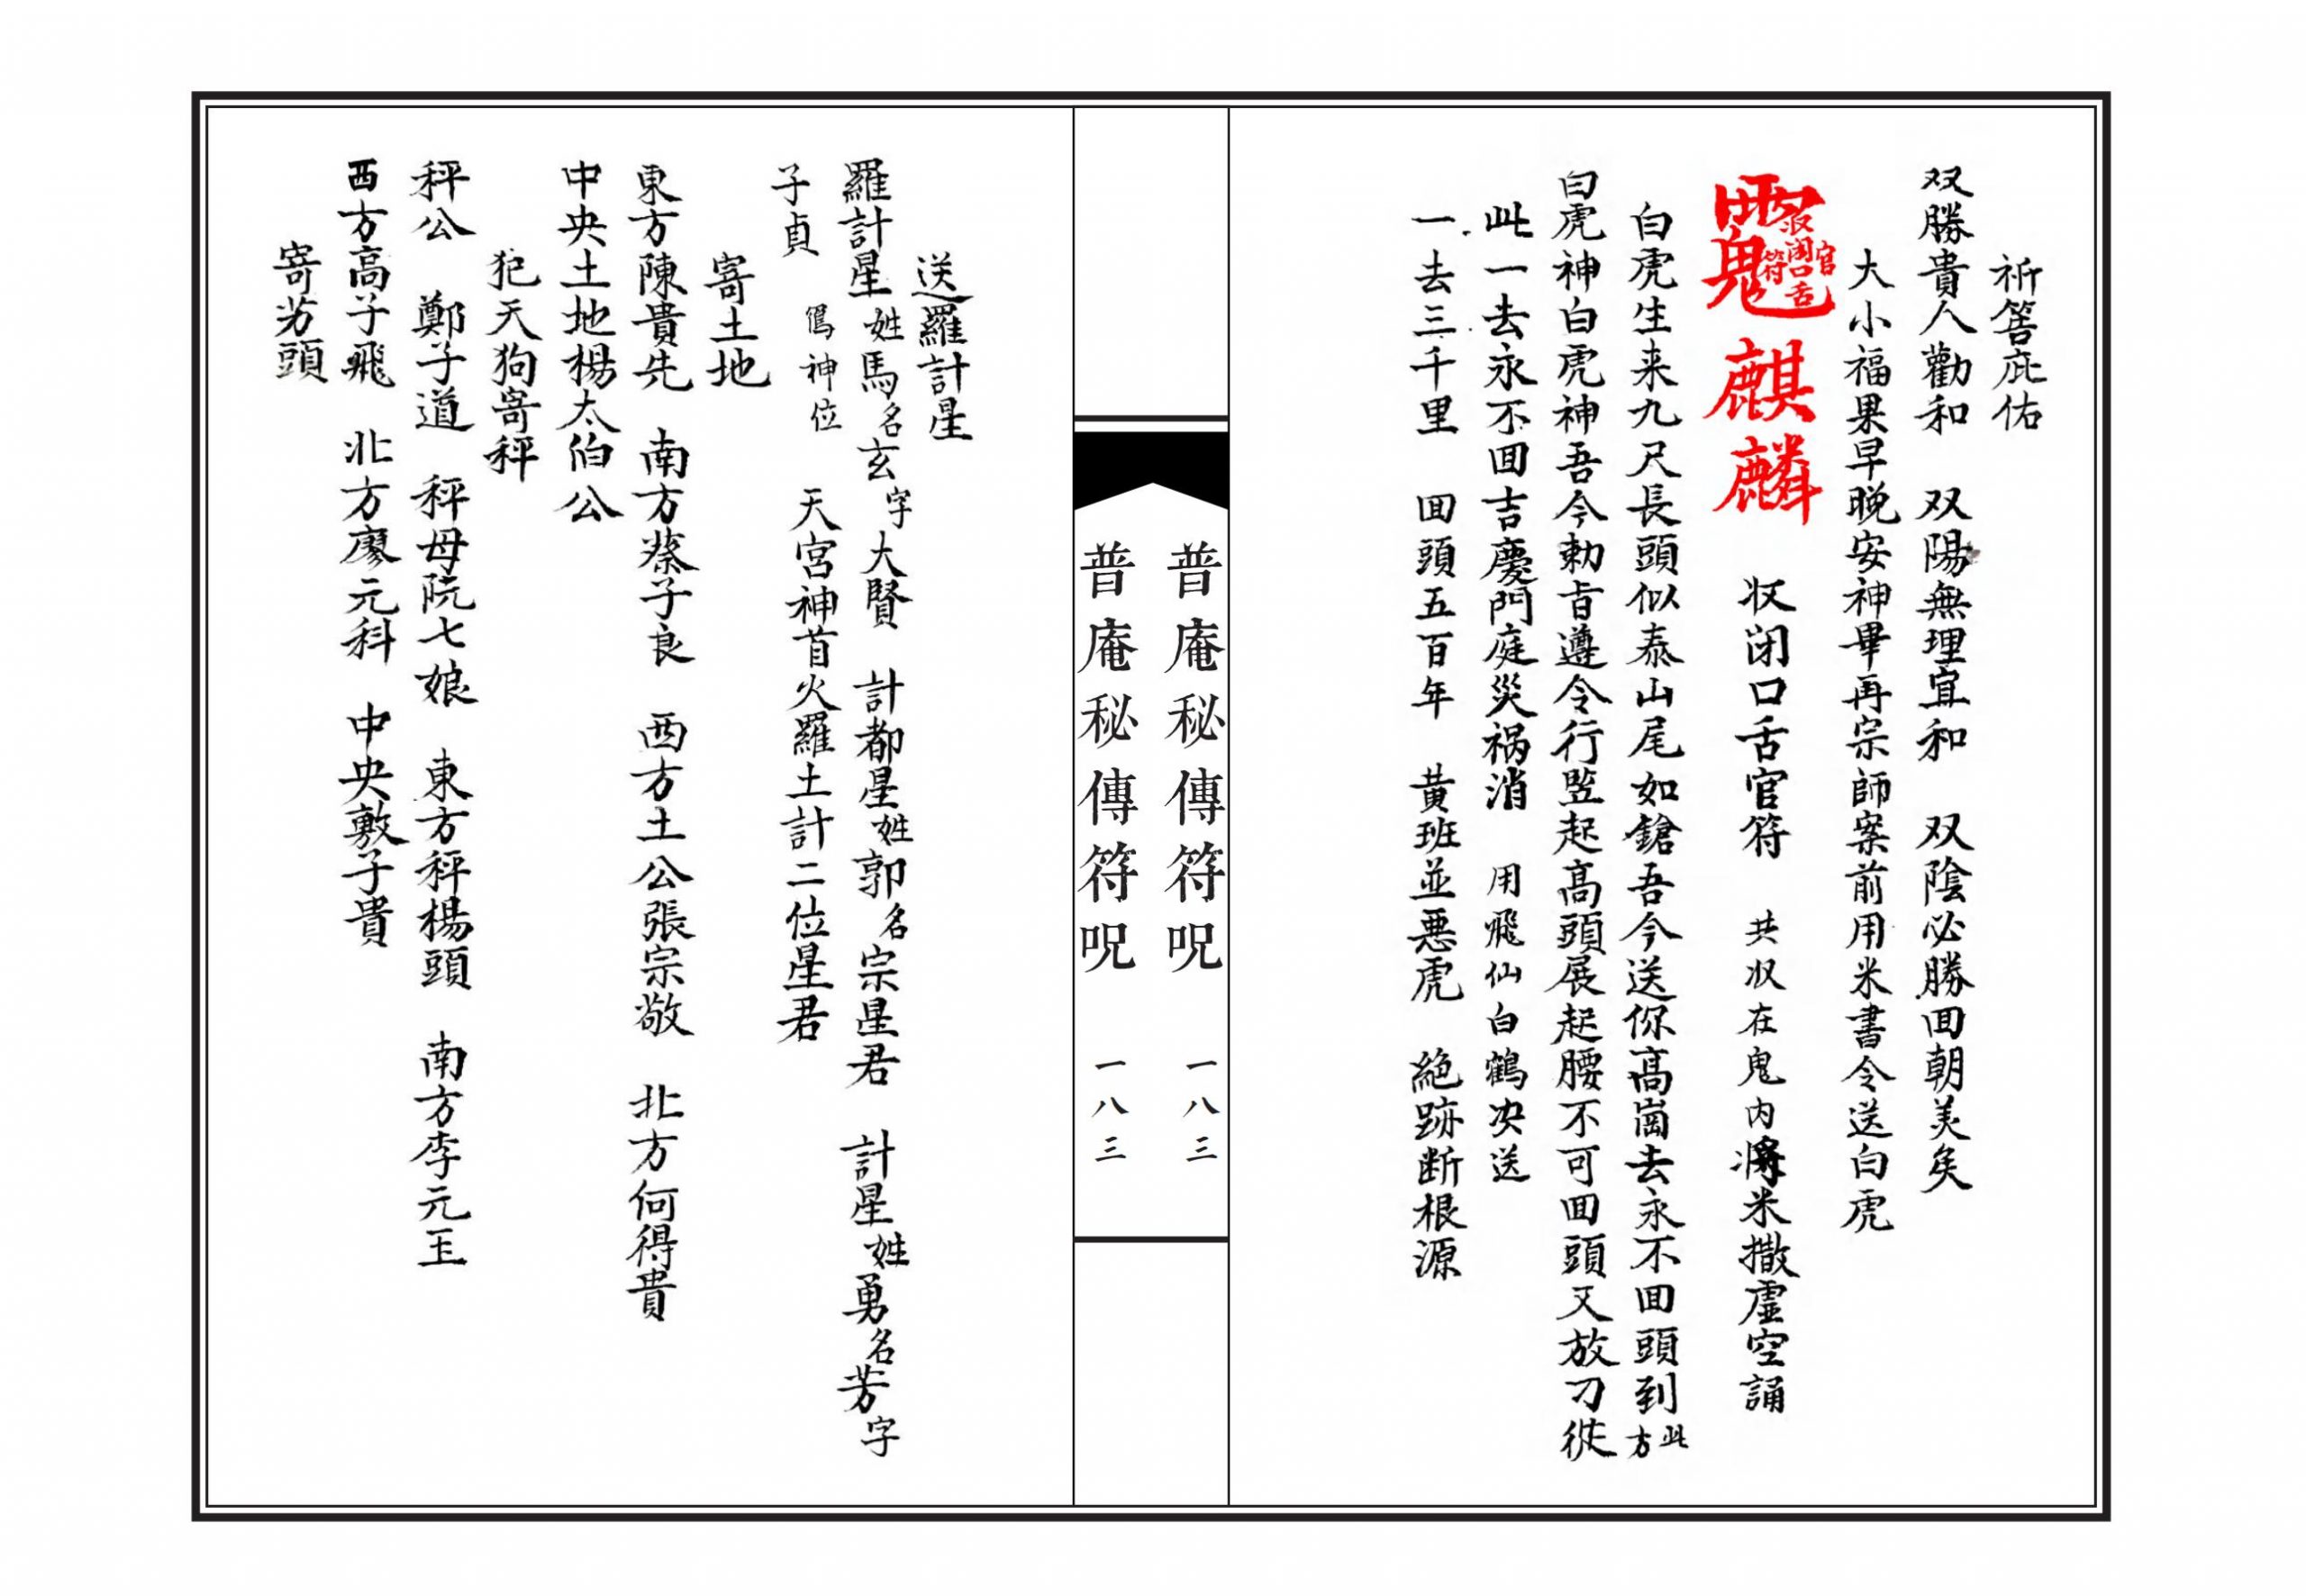 祈筶庇佑
双勝貴人勸和　双陽無理宜和　双陰必勝回朝美矣
大小福果早晚安神畢再宗師案前用米書令送白虎
麒麟　收闭口舌官符　共收在鬼内將米撒虛空誦
白虎生来九尺長頭似泰山尾如鎗吾今送你高崗去永不回頭到此方
白虎神白虎神吾今勅旨遵令行竖起高頭展起腰不可回頭又放刀從
此一去永不回吉慶門庭災祸消　用飛仙白鶴决送
一去三千里　回頭五百年　黄班並悪虎　絕跡断根源
普庵秘傳符呪　一八三
普庵秘傳符呪　一八三
送羅計星
羅計星姓馬名玄字大賢　計都星姓郭名宗星君　計星姓勇名芳字
子貞　神位　天宮神首火羅土計二位星君
寄土地
東方陳貴先　南方蔡子良　西方土公張宗敬　北方何得貴
中央土地楊太伯公
犯天狗寄秤
秤公　鄭子道　秤母阮七娘　東方秤楊頭　南方李元玉
西方高子飛　北方廖元科　中央敷子貴
寄芳頭